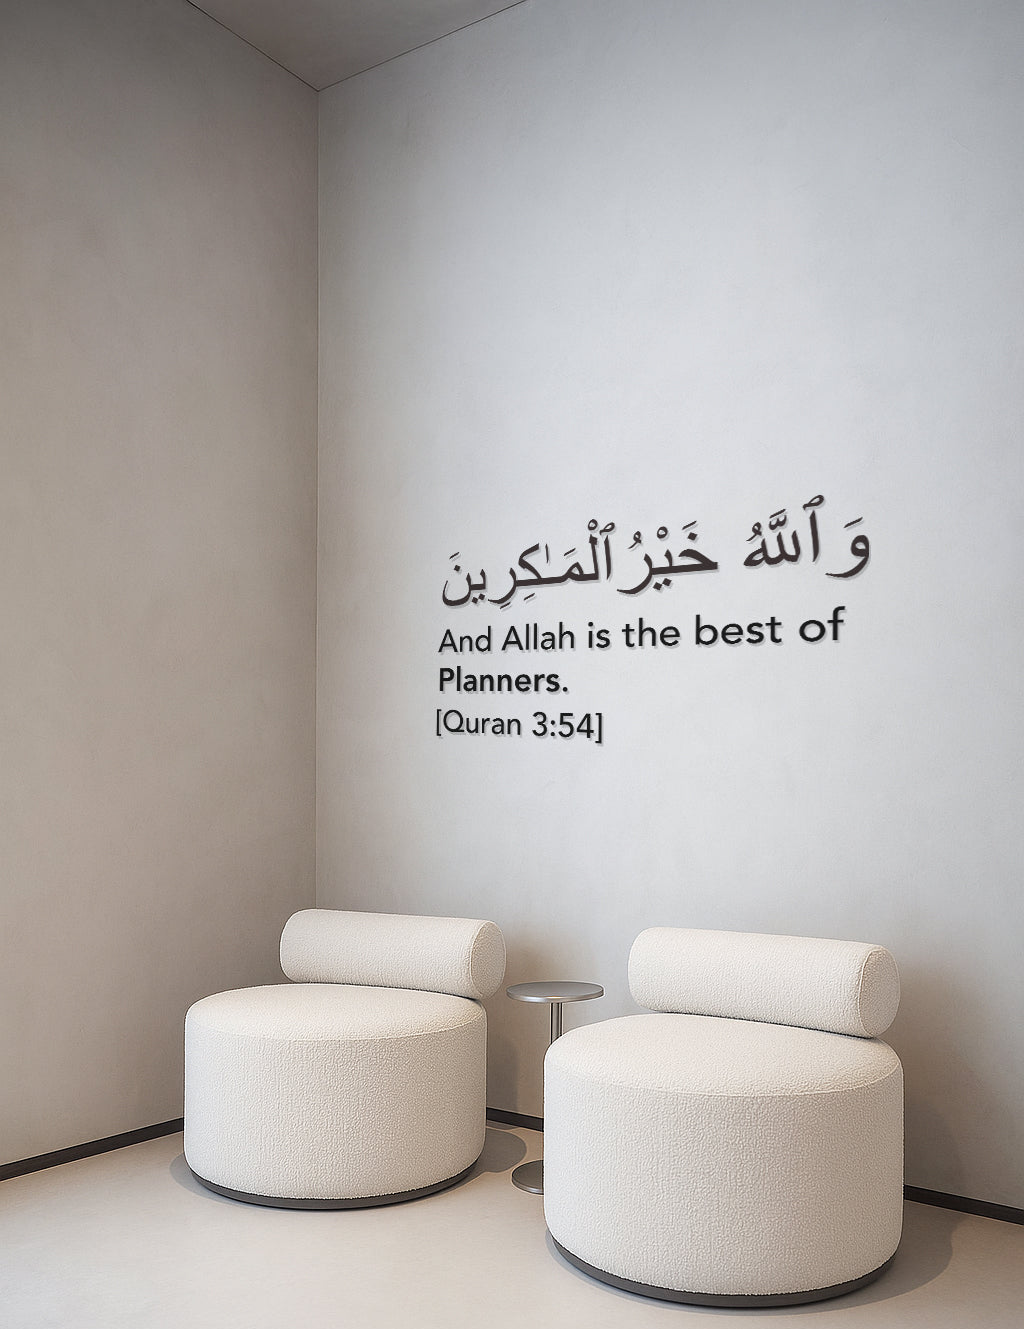 وَٱللَّهُ خَيْرُ ٱلْمَـٰكِرِينَ
And Allah is the best of
Planners.
[Quran 3:54]